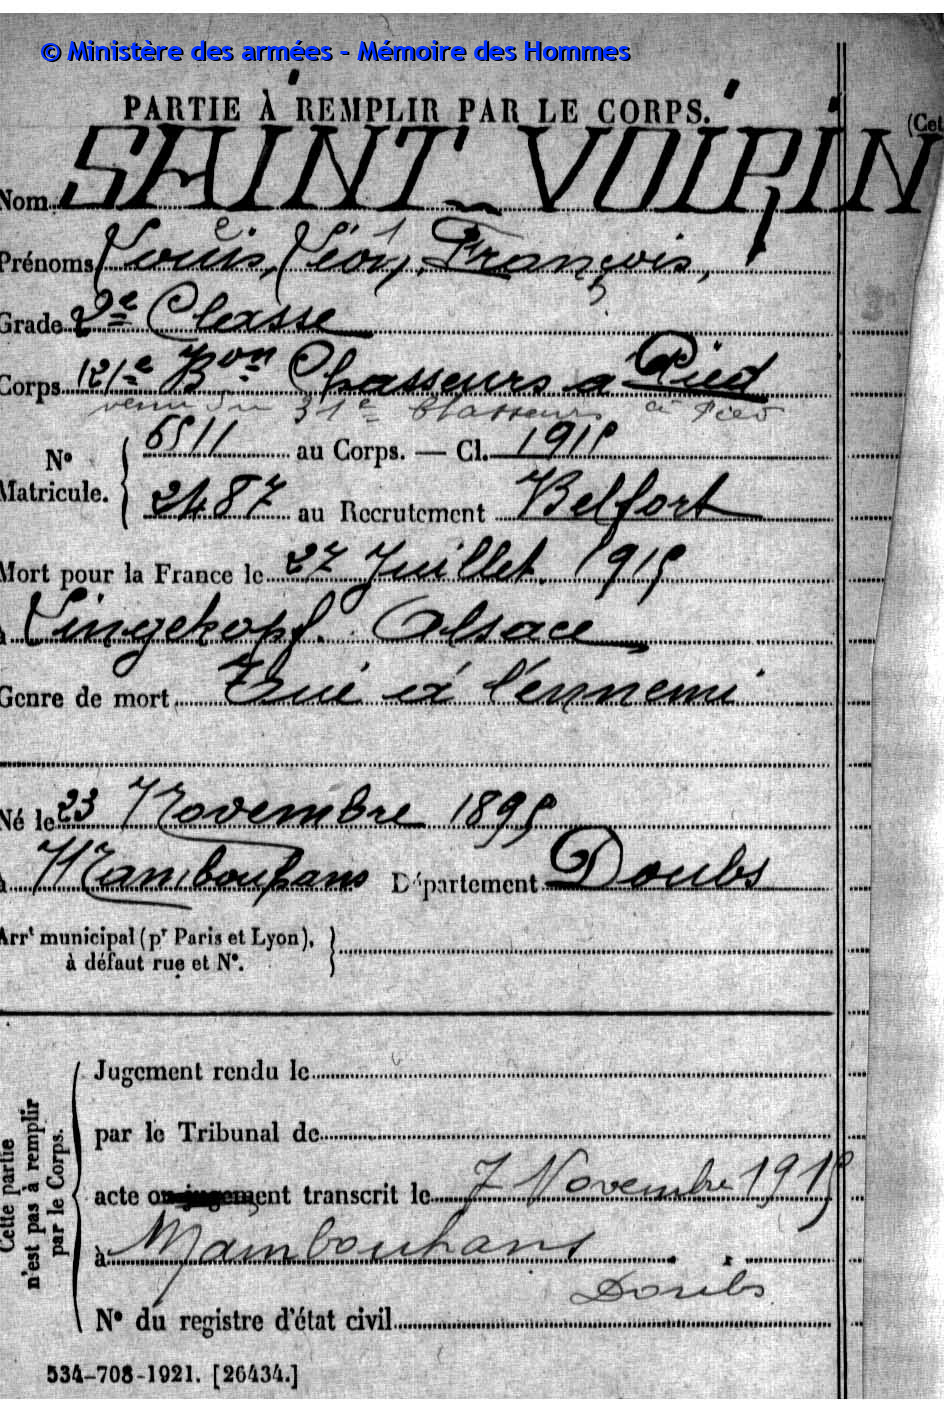 © Ministère des armées - Mémoire des Hommes
PARTIE À REMPLIR PAR LE CORPS.
(Cet
Nom SAINT-VOIRIN
Prénoms Louis, Léon, François,
Grade 2e Classe
Corps 121e Bon Chasseurs à Pied
venu du 31e Chasseurs à Pied
No Matricule. { 6511 au Corps. — Cl. 1915
2487 au Recrutement Belfort
Mort pour la France le 27 Juillet 1915
à Lingekopf. Alsace
Genre de mort Tué à l'ennemi
Né le 23 Novembre 1895
à Mambouhans Département Doubs
Arrt municipal (pr Paris et Lyon), }
à défaut rue et No.
Cette partie n'est pas à remplir par le Corps.
Jugement rendu le
par le Tribunal de
acte ou jugement transcrit le 7 Novembre 1915
à Mambouhans
Doubs
No du registre d'état civil
534-708-1921. [26434.]